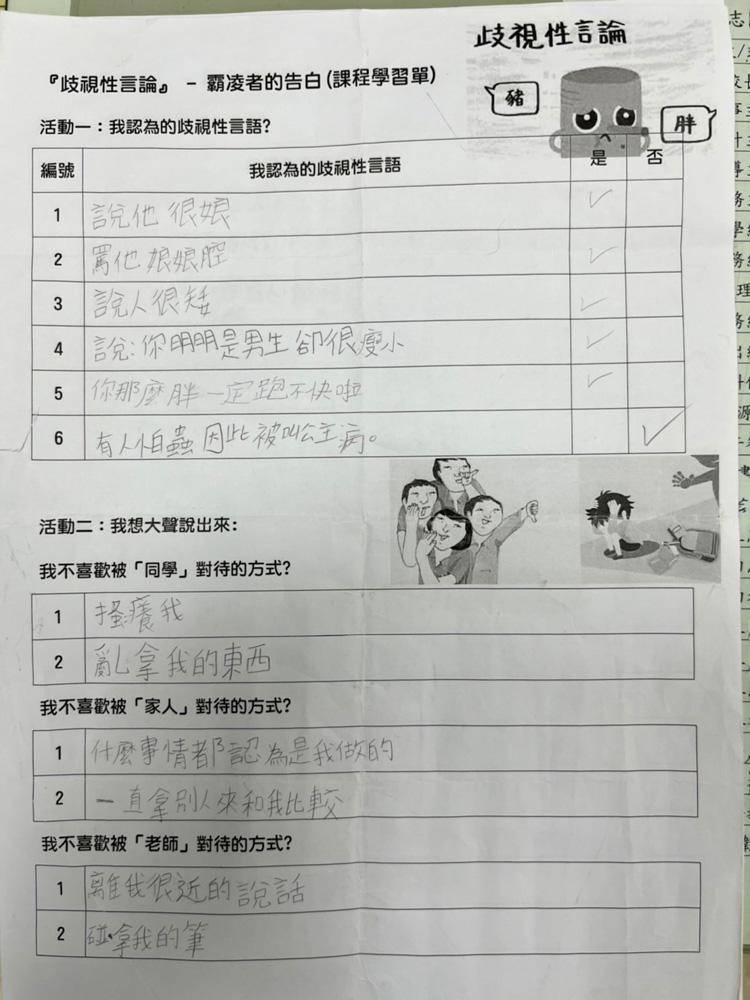 歧視性言論
『歧視性言論』 - 霸凌者的告白(課程學習單)
豬
胖
活動一：我認為的歧視性言語?
編號 我認為的歧視性言語 是 否
1 說他很娘 ✓
2 罵他娘娘腔 ✓
3 說人很矮 ✓
4 說:你明明是男生卻很瘦小 ✓
5 你那麼胖一定跑不快啦 ✓
6 有人怕蟲因此被叫公主病。 ✓
活動二：我想大聲說出來:
我不喜歡被「同學」對待的方式?
1 搔癢我
2 亂拿我的東西
我不喜歡被「家人」對待的方式?
1 什麼事情都認為是我做的
2 一直拿別人來和我比較
我不喜歡被「老師」對待的方式?
1 離我很近的說話
2 碰拿我的筆